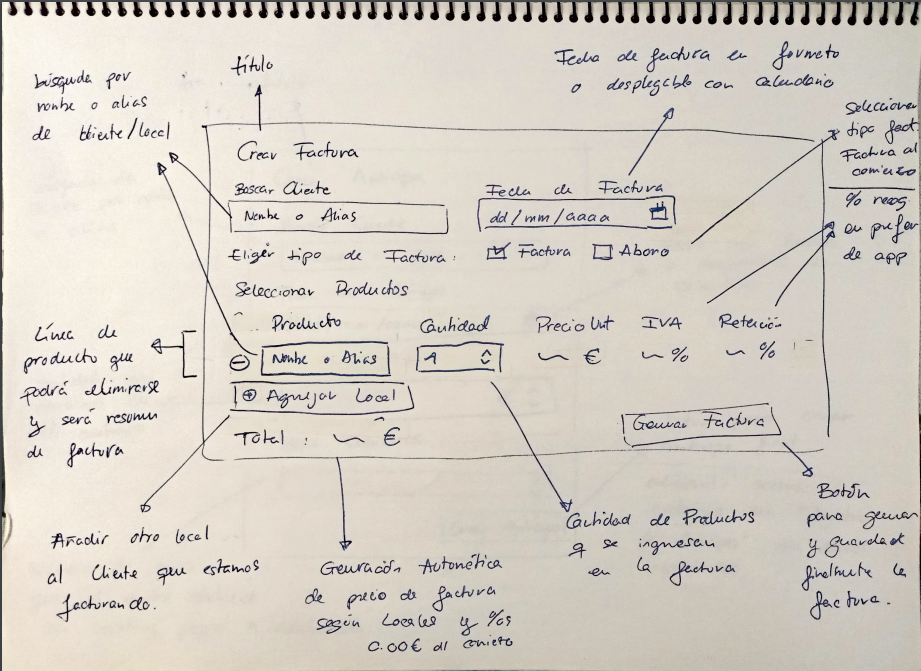 búsqueda por
nombe o alias
de cliente/local
título
Fecha de factura en formato
o desplegable con calendario
Seleccionar
tipo fact
Factura al
comienzo
% recog
en prefer
de app
Crear Factura
Buscar Cliente
Nombe o Alias
Fecha de Factura
dd/mm/aaaa
Eligir tipo de Factura:
Factura
Abono
Seleccionar Productos
Producto
Cantidad
Precio Unt
IVA
Retención
Nombe o Alias
1
€
%
%
Agregar Local
Total :
€
Generar Factura
Línea de
producto que
podrá eliminarse
y será resumen
de factura
Añadir otro local
al Cliente que estamos
facturando.
Generación Automática
de precio de factura
según Locales y %s
0.00€ al comienzo
Cantidad de Productos
q se ingresan
en la factura
Botón
para generar
y guardar
finalmente la
factura.